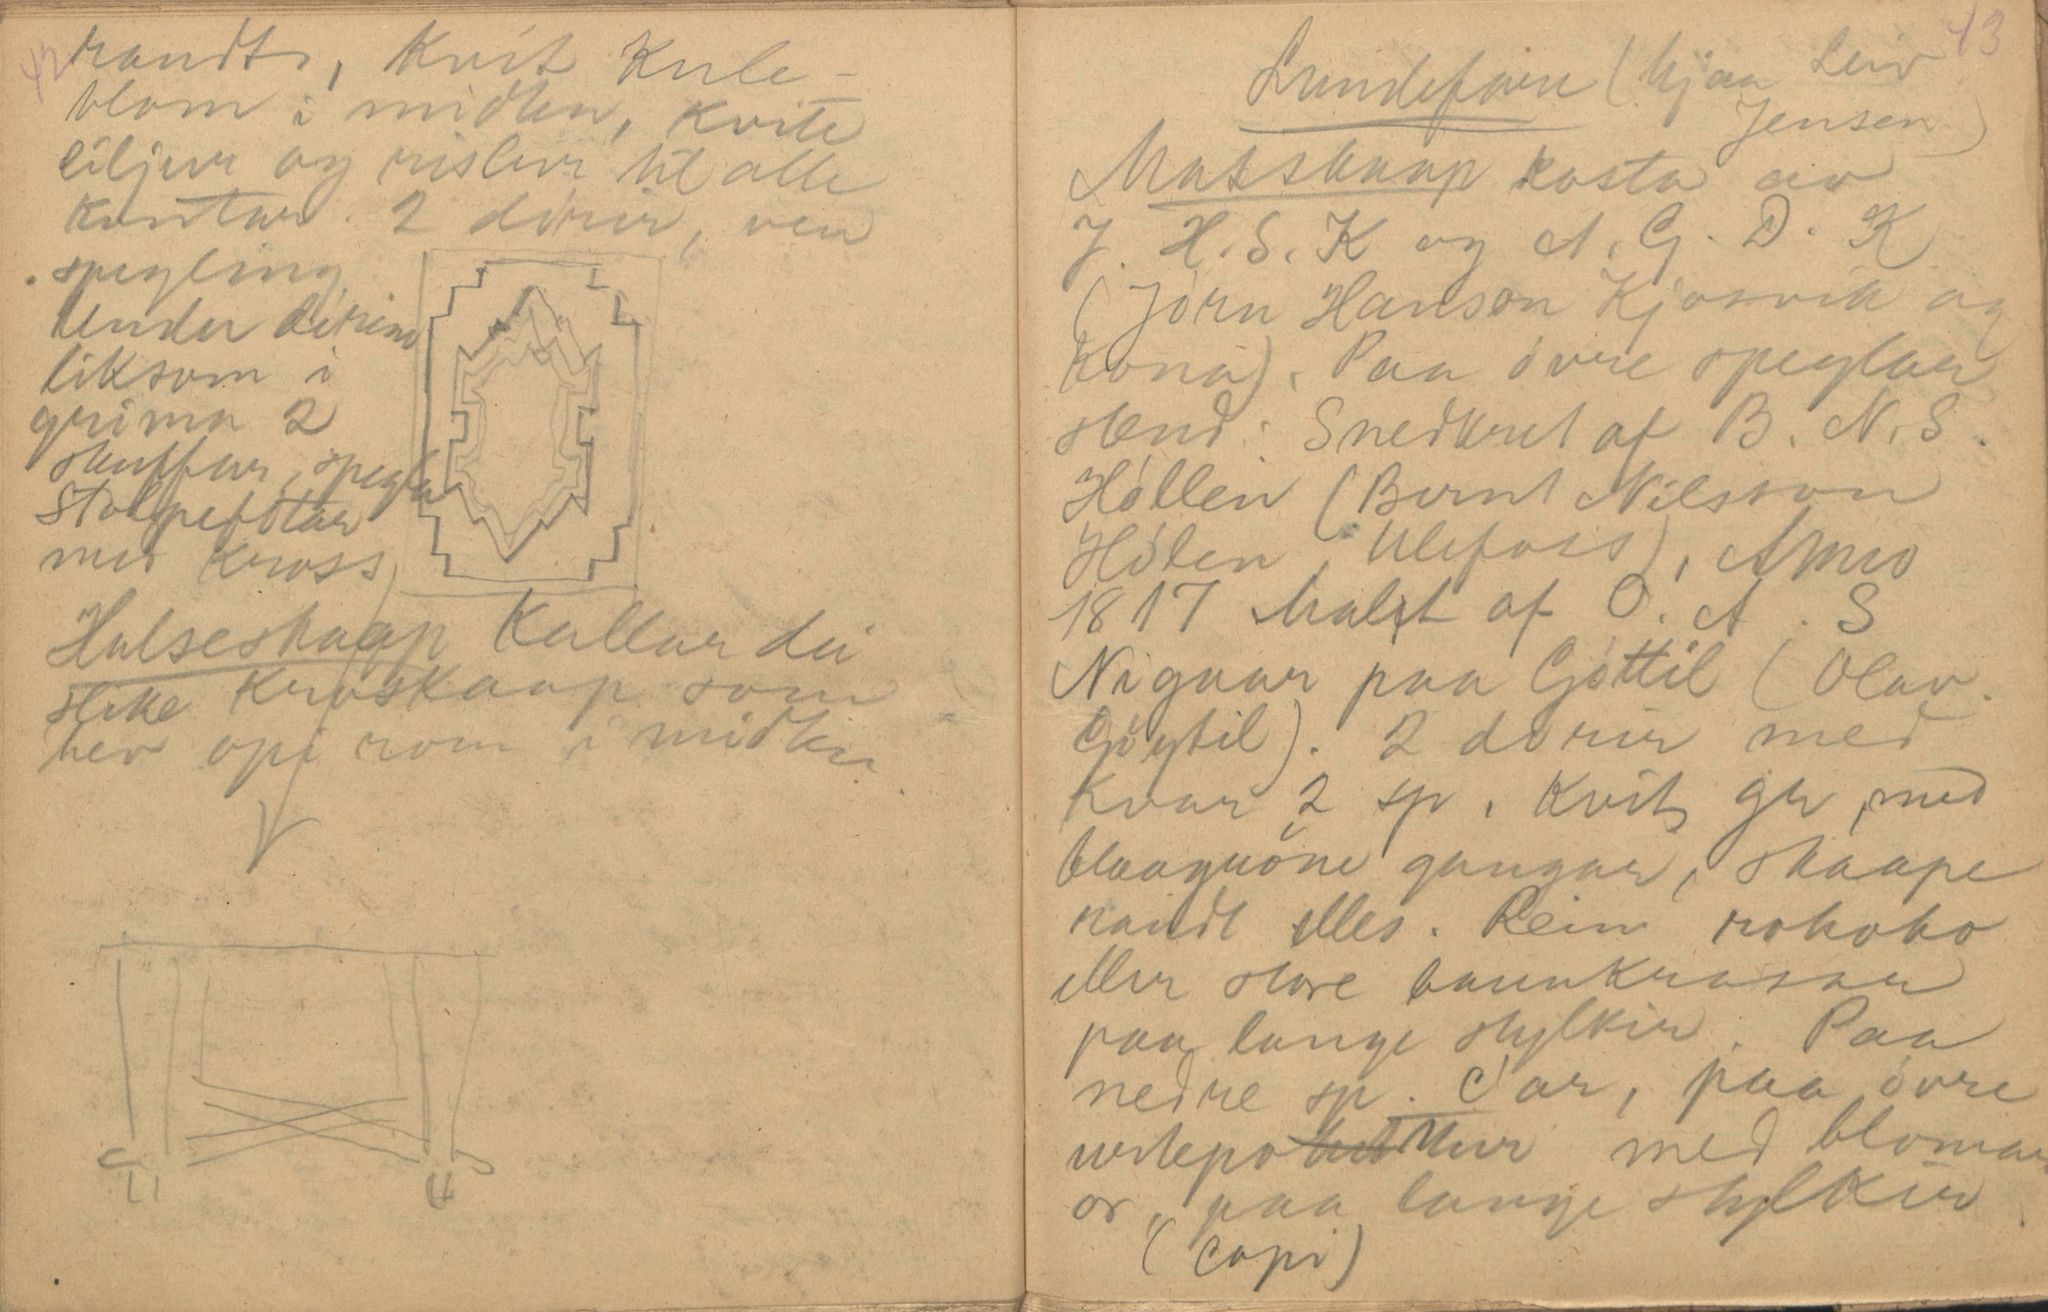 42
raudt, Kvit Kule-
blom i midten, Kvite
liljur og rislur til alle
Kantar. 2 dörir, ven
spegling.
Under dörine
liksom i
grima 2
skuffur, spegla
Stolpefötar
med Kross
Halseskaap Kallar dei
slike Kroskaap som
hev opi rom i midten
43
Lundefaru (hjaa Leiv
Jensen)
Matskaap kosta av
J. H. S. K og A. G. D. K
(Jörn Hanson Kjosvik og
kona). Paa övre speglar
stend: Snedkret af B. N. S.
Höllen (Bernt Nilsson
Hölen, Ulefoss), Anno
1817 Malet af O. A. S
Niguar paa Göttil (Olav
Göytil). 2 dörir med
Kvar 2 sp. Kvit gr, med
blaagröne gangar, skaape
raudt elles. Rein rokoko
eller store baunkrossar
paa lange stylkir. Paa
nedre sp. Aar, paa övre
urtepottur med blomar
or, paa lange stylkir
(copi)